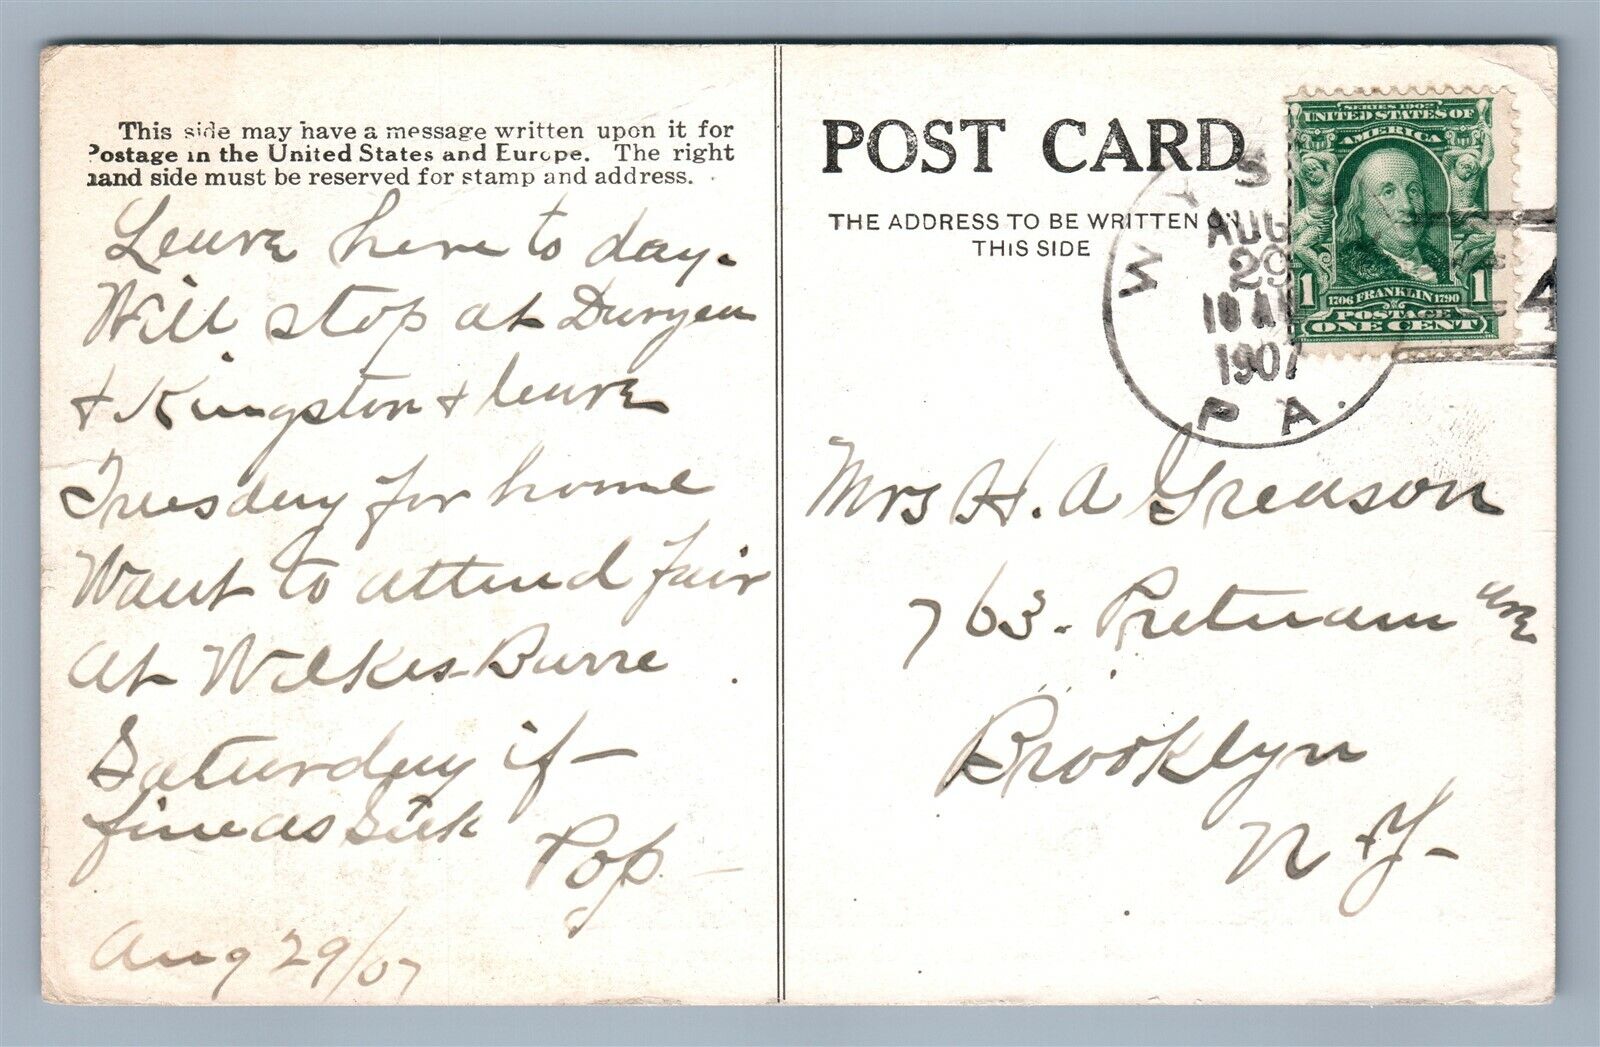 This side may have a message written upon it for
Postage in the United States and Europe. The right
hand side must be reserved for stamp and address.
Leave here to day.
Will stop at Duryea
& Kingston & leave
Tuesday for home
Want to attend fair
at Wilkes-Barre
Saturday if -
fine as Silk
Pop -
Aug 29/07
POST CARD
THE ADDRESS TO BE WRITTEN ON
THIS SIDE
AUG
29
10 AM
1907
PA.
4
SERIES 1902
UNITED STATES OF
AMERICA
1706 FRANKLIN 1790
1 POSTAGE 1
ONE CENT
Mrs H. A Greason
763. Putnam Ave
Brooklyn
N.Y-